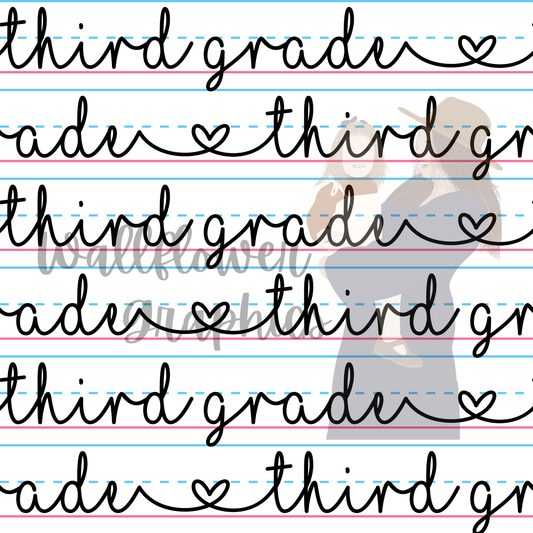 third grade
rade third gr
third grade
Wallflower
rade third gr
Graphics
third grade
rade third gr